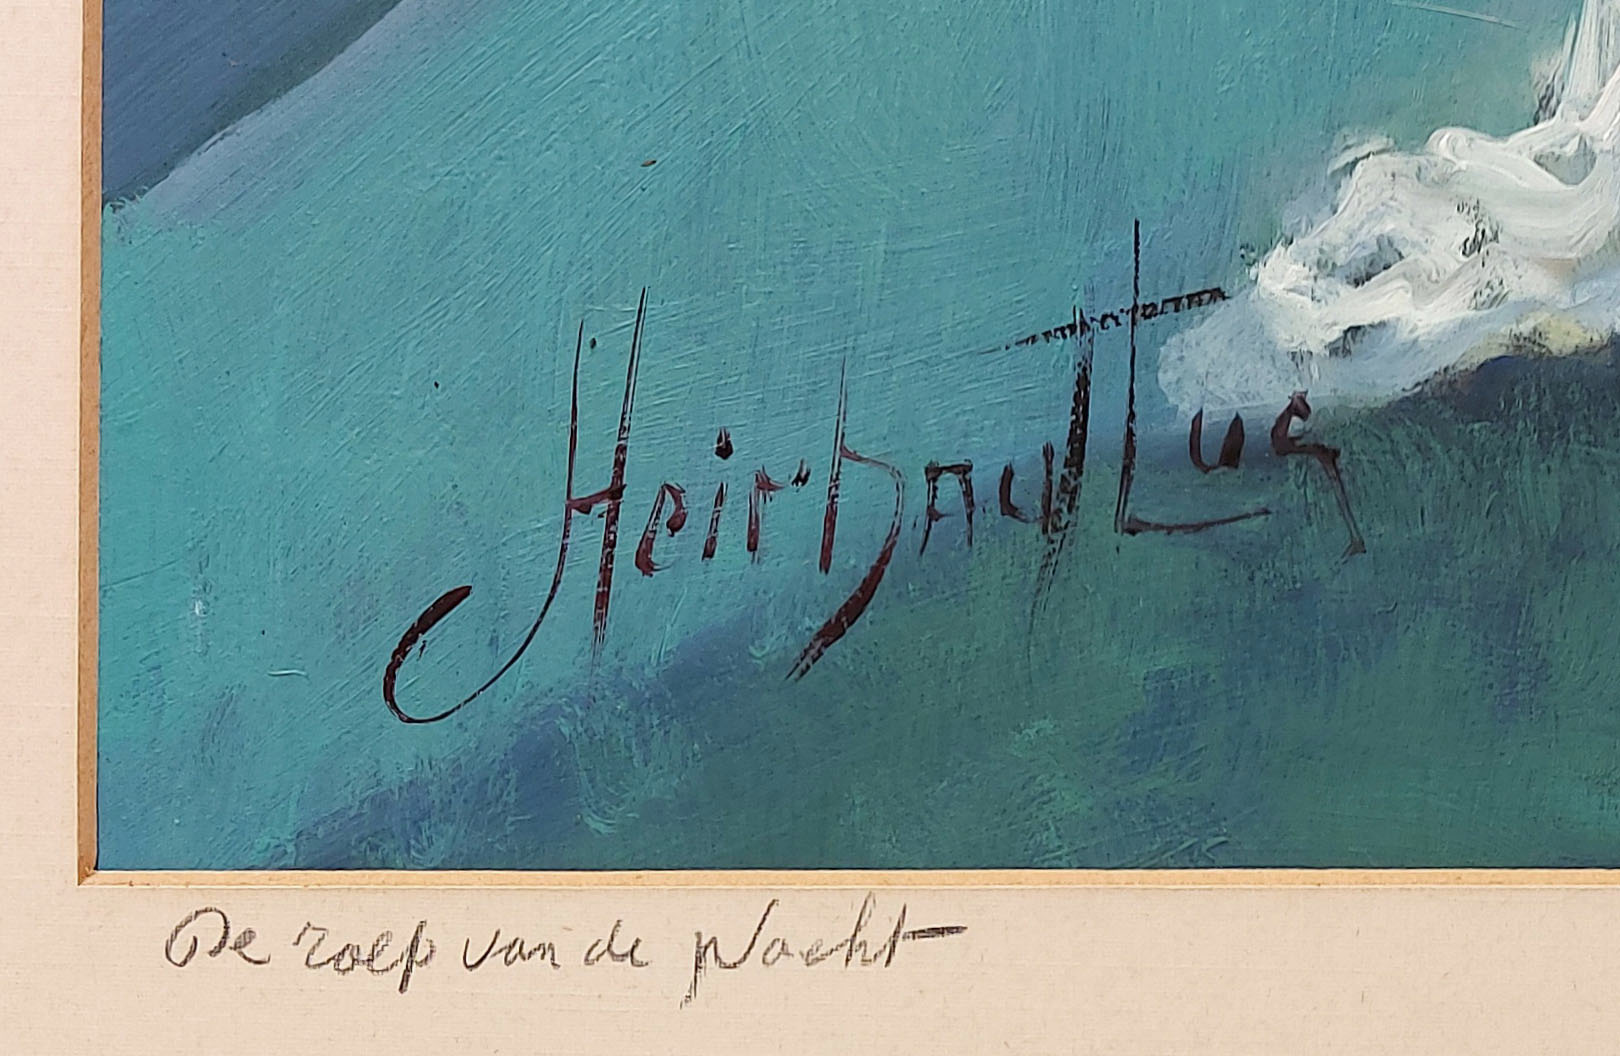 Heirbaut Luc
De roep van de Nacht